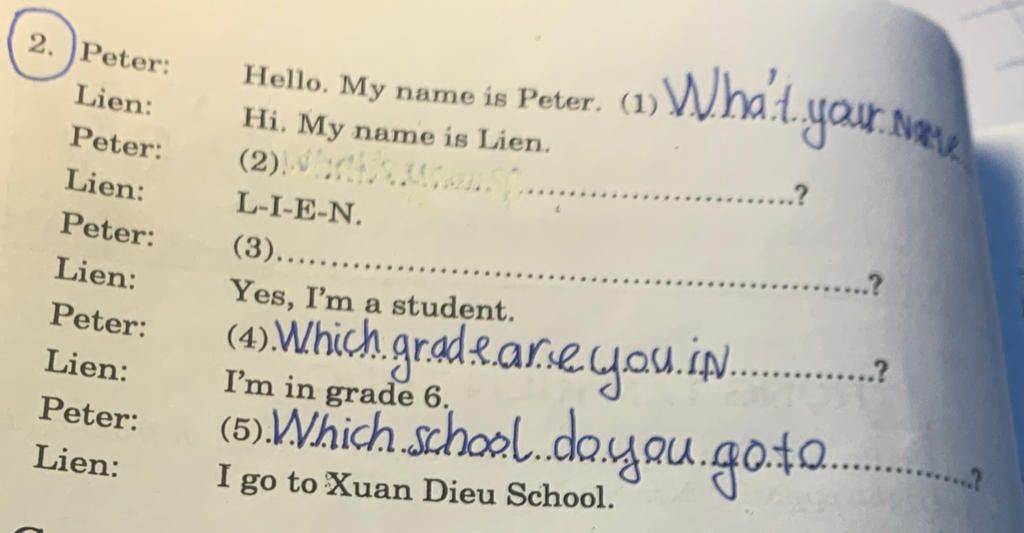 2. Peter: Hello. My name is Peter. (1) Wha't your Name
Lien: Hi. My name is Lien.
Peter: (2)..............................?
Lien: L-I-E-N.
Peter: (3)..............................?
Lien: Yes, I'm a student.
Peter: (4).Which grade are you in...............?
Lien: I'm in grade 6.
Peter: (5).Which school do you go to...............?
Lien: I go to Xuan Dieu School.